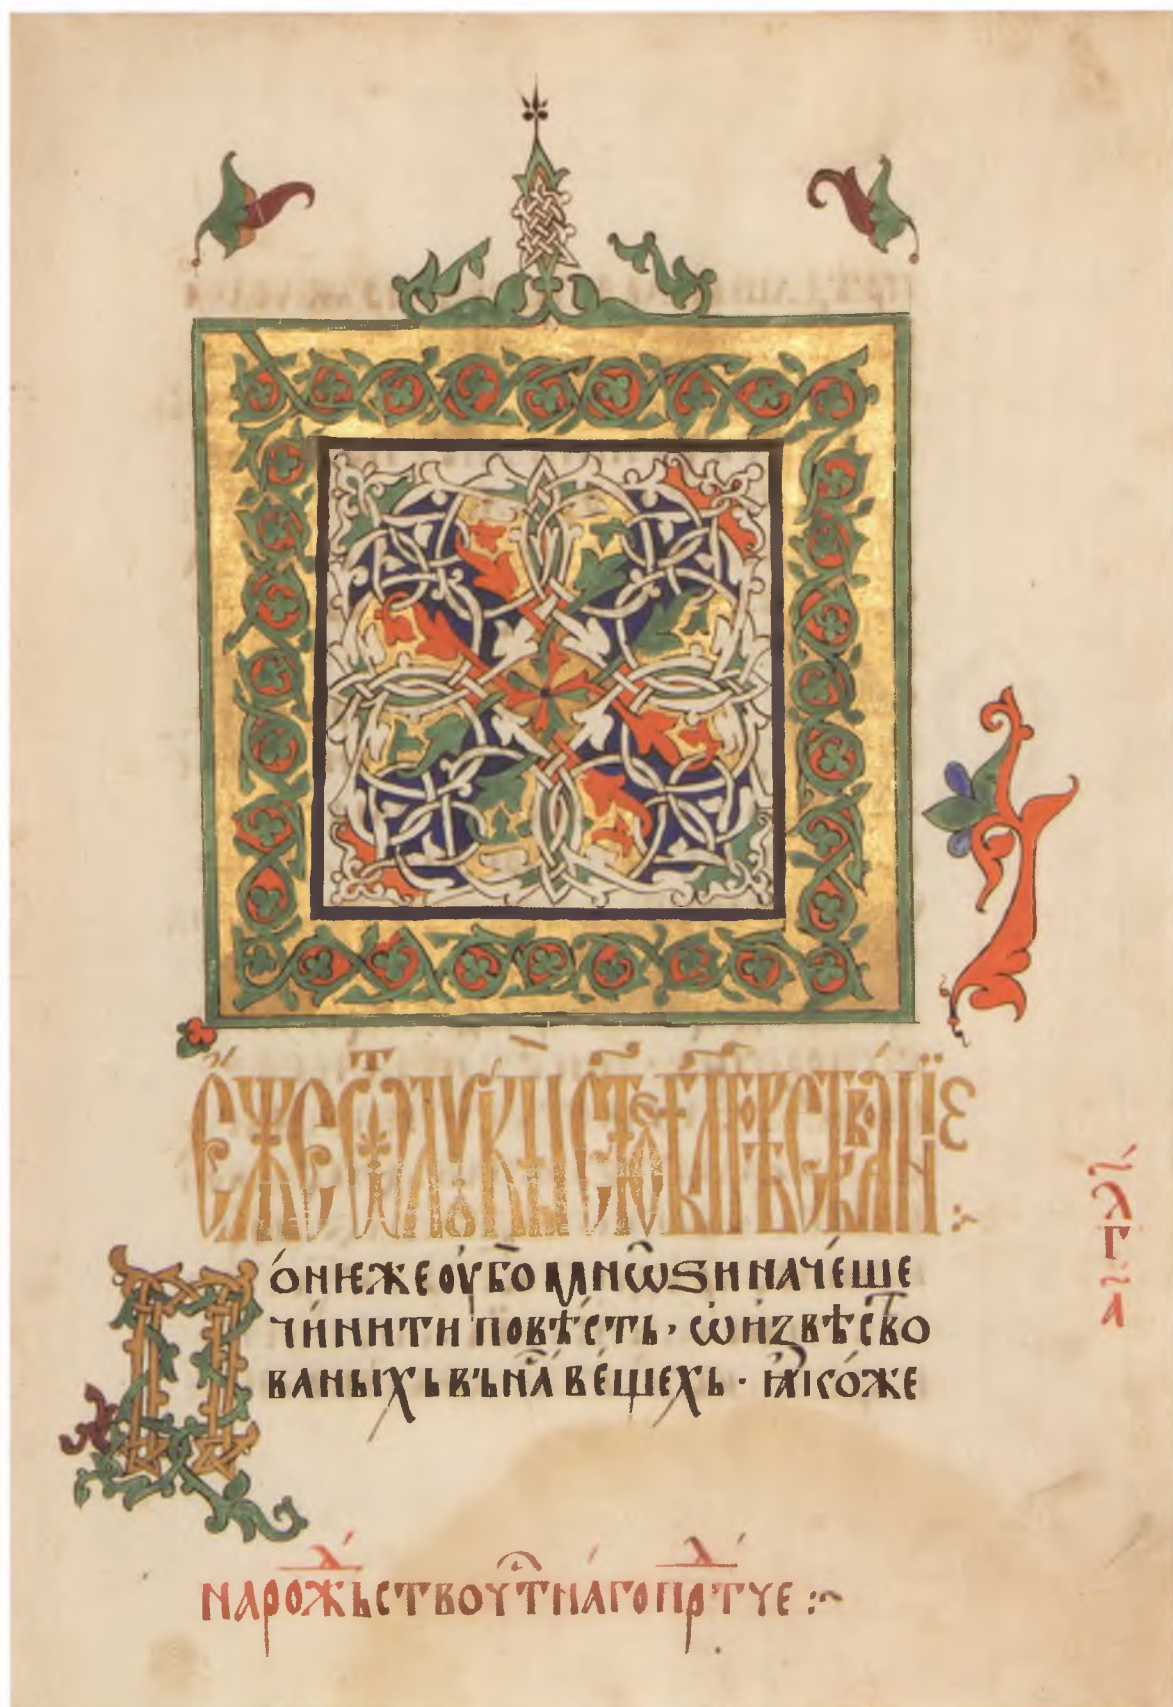 Е́ЖЕ Ѿ ЛУКЫ СТ҃ОЕ БЛГ҃ОВѢСТВОВА́НЇЕ
По́нꙗже оу҆бо мнѡѕи наче́ше
чи́нити повѣ́сть · ѡ҆ и҆звѣ́ство
ваныхь въ на́ ве́щехь · ꙗ҆ко́же
на рож́ьство ч҃тнаго прⷣтче :~